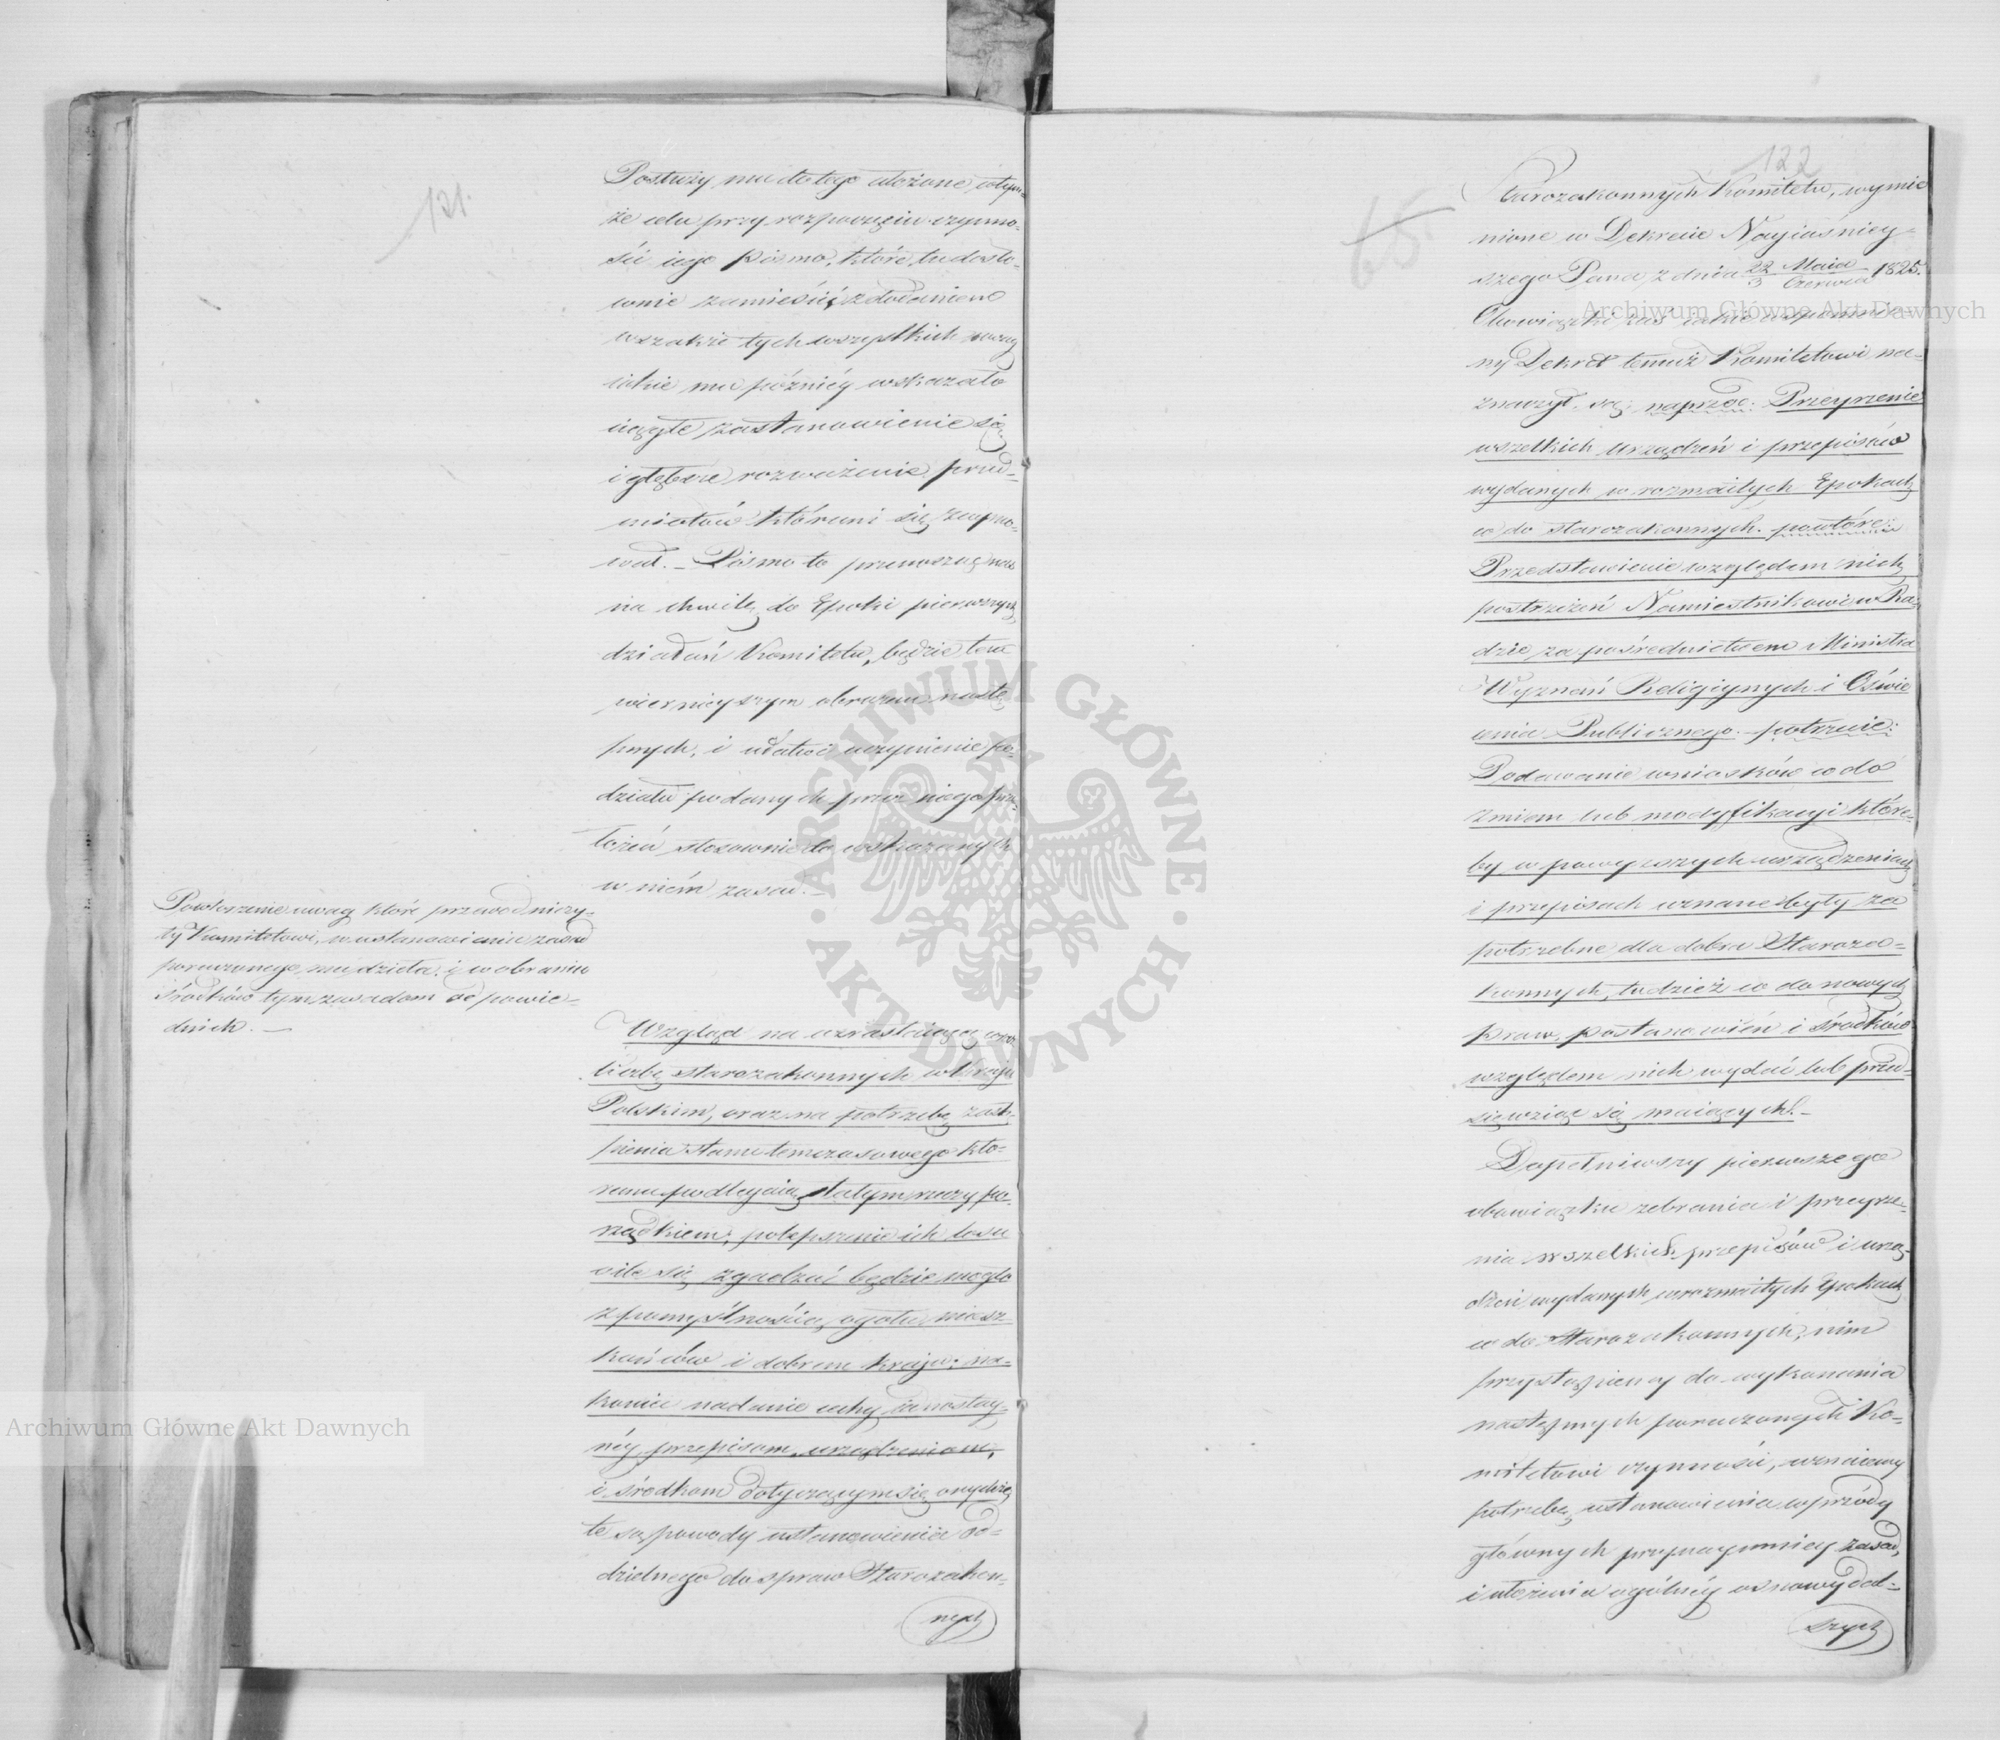 121.
Posłuży mu do tego ułożone, w tym-
że celu przy rozpoczęciu czynno-
ści iego Pismo, które tu dosło-
wnie zamieścić, z dodaniem
wszakże tych wszystkich uwag
iakie mu późniéy wskazało
ciągłe zastanowienie się
i głębsze rozważenie przed-
miotów któremi się zaymo-
wał. – Pismo to przenosząc nas
na chwilę do Epoki pierwszych
działań Komitetu, będzie tem
wiernieyszym obrazem nastę-
pnych, i ułatwi uczynienie po-
działu podanych przez niego
stosownie do wskazanych
w niém zasad. –
Powtorzenie uwag które przewodniczy-
ły Komitetowi, w ustanowieniu zasad
poruczonego mu dzieła i w obraniu
środków tym zasadom odpowie-
dnich. —
Wzgląd na wzrastaiącą coraz
liczbę starozakonnych w Kraju
Polskim, oraz na potrzebę zastą-
pienia stanu tymczasowego któ-
remu podlegaią, stałym rzeczy po-
rządkiem; polepszenie ich losu
o ile się zgadzać będzie mogło
z pomyślnością ogółu miesz-
kańców i dobrem kraju; na-
koniec nadanie cechy iednostay-
néy przepisom, urządzeniom,
i środkom dotyczącym się onychże
te są powody ustanowienia od-
dzielnego do spraw Starozakon-
nych
122
65.
Starozakonnych Komitetu, wymie-
nione w Dekrecie Nayiaśniey-
szego Pana z dnia 22 Maia / 3 Czerwca 1825.
Obowiązki zaś iakie wspomnio-
ny Dekret temuż Komitetowi na-
znaczył, są: naprzód: Przeyrzenie
wszelkich urządzeń i przepisów
wydanych w rozmaitych Epokach
co do starozakonnych. powtóre:
Przedstawienie względem nich
postrzeżeń Namiestnikowi w Ra-
dzie za pośrednictwem Ministra
Wyznań Religiynych i Oświe-
cenia Publicznego. potrzecie:
Podawanie wniosków co do
zmian lub modyfikacyi które-
by w powyższych urządzeniach
i przepisach uznane były za
potrzebne dla dobra Staroza-
konnych, tudzież co do nowych
praw, postanowień i środków
względem nich wydać lub przed-
sięwziąć się maiących. –
Dopełniwszy pierwszego
obowiązku zebrania i przeyrze-
nia wszelkich przepisów i urzą-
dzeń wydanych w rozmaitych Epokach
co do Starozakonnych, nim
przystąpiemy do wykonania
następnych poruczonych Ko-
mitetowi czynności, uznaiemy
potrzebę ustanowienia wprzódy
głównych przynaymniéy zasad,
i ułożenia ogólnéy osnowy dal-
szych
Archiwum Główne Akt Dawnych
Archiwum Główne Akt Dawnych
ARCHIWUM GŁÓWNE
· AKT DAWNYCH ·